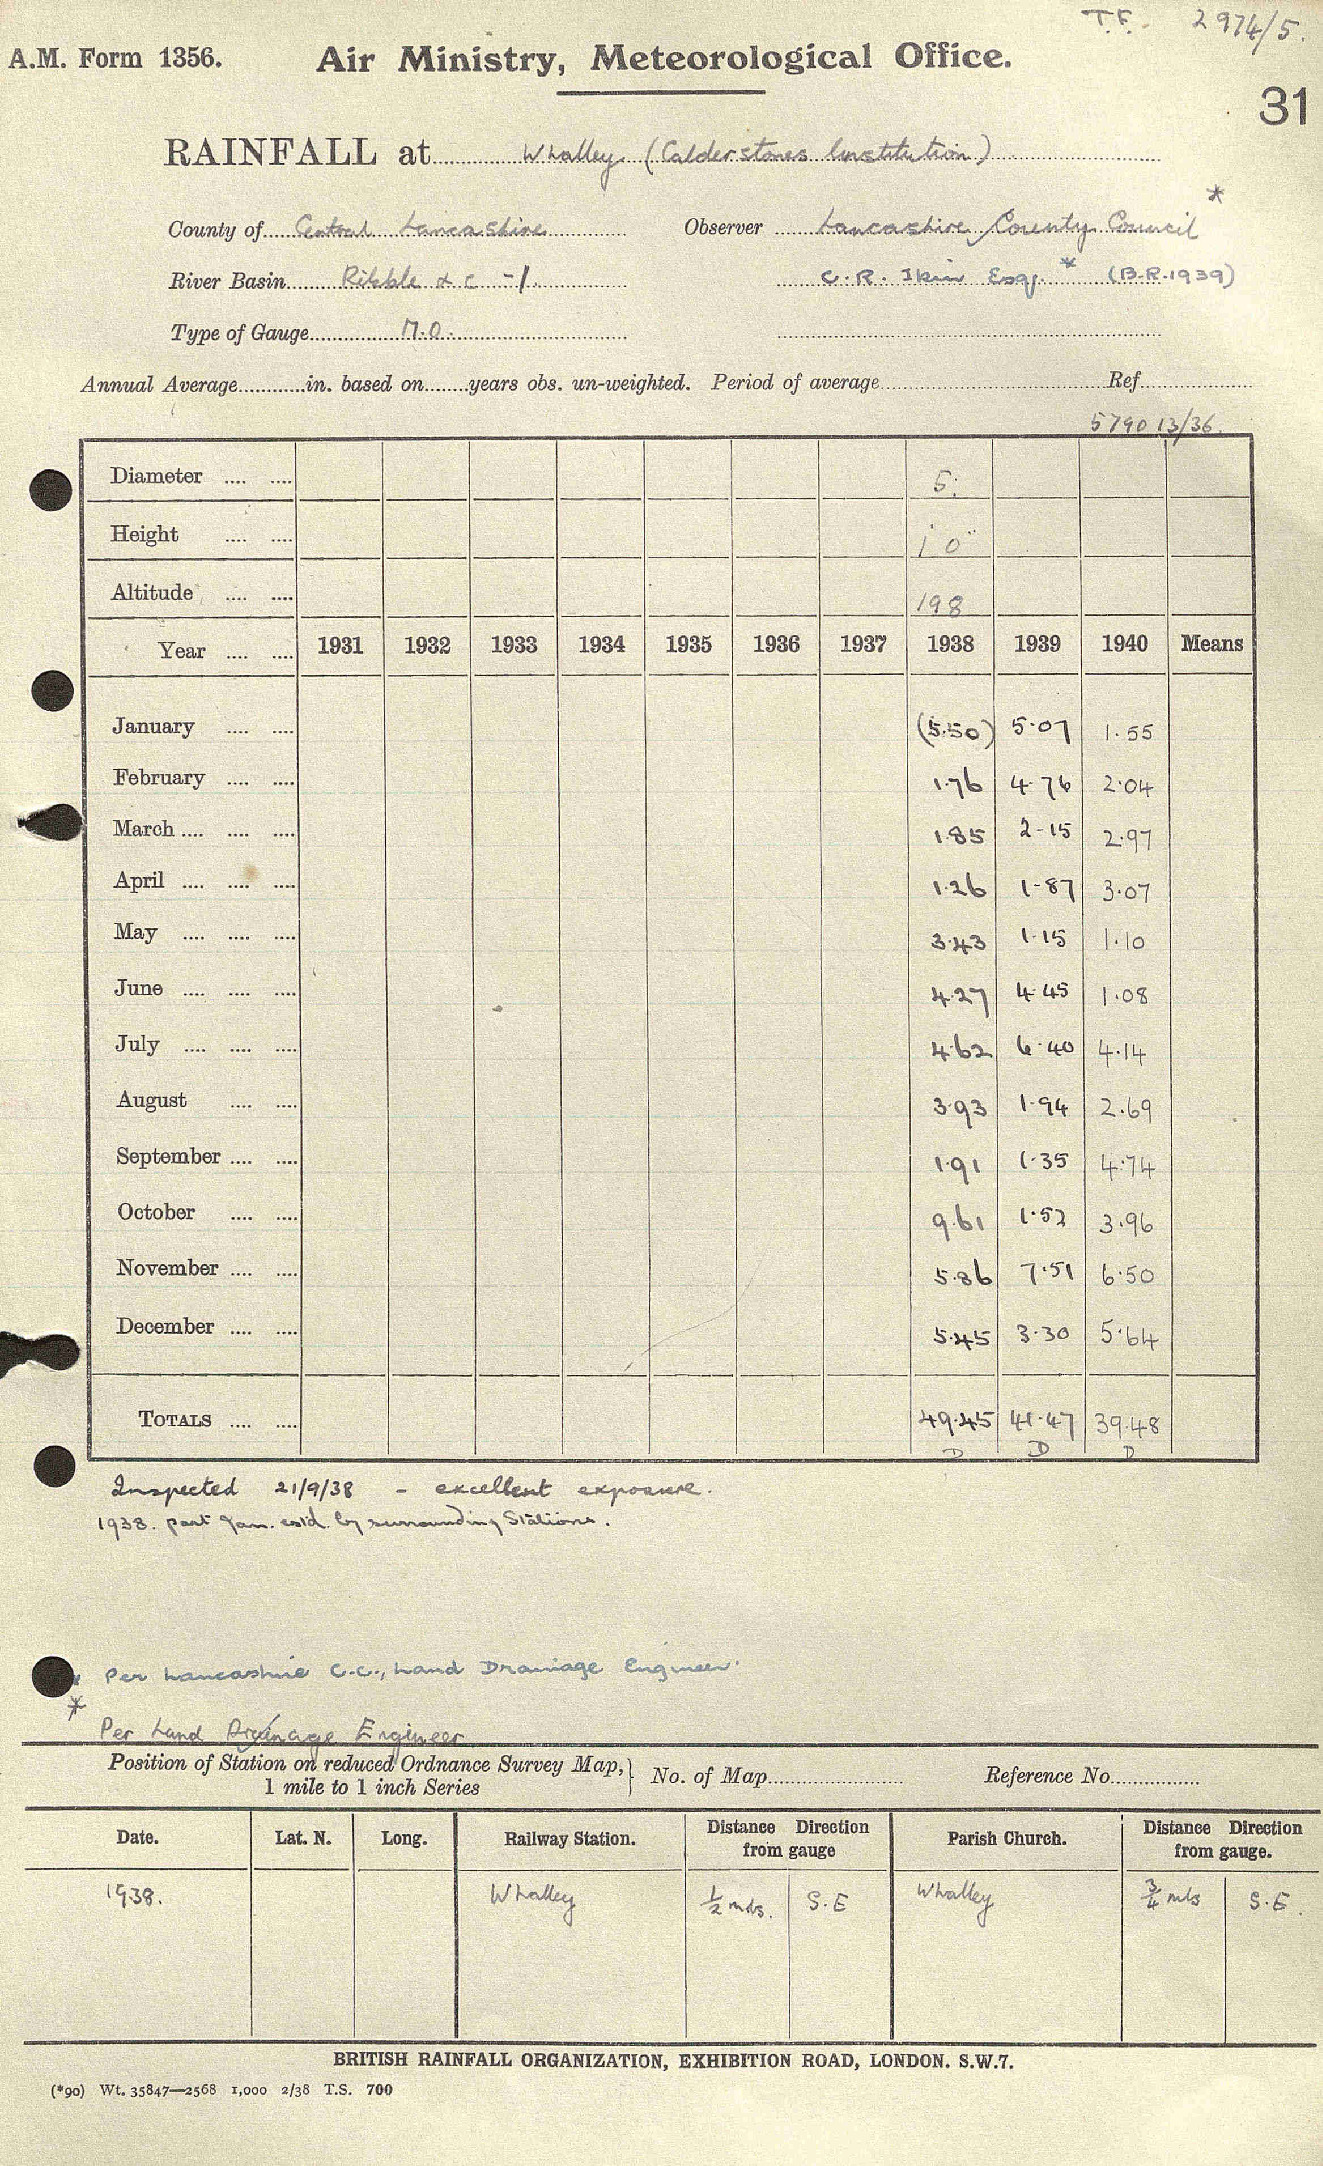 T.F. 2974/5.
A.M. Form 1356. Air Ministry, Meteorological Office.
31
RAINFALL at Whalley (Calderstones Institution)
County of Central Lancashire Observer Lancashire County Council *
River Basin Ribble &c -1. C. R. Ikin Esq. * (B.R.1939)
Type of Gauge M.O.
Annual Average in. based on years obs. un-weighted. Period of average Ref
5790 13/36.
Diameter .... .... 5.
Height .... .... 1' 0"
Altitude .... .... 198
Year .... .... 1931 1932 1933 1934 1935 1936 1937 1938 1939 1940 Means
January .... .... (5.50) 5.07 1.55
February .... .... 1.76 4.76 2.04
March .... .... .... 1.85 2.15 2.97
April .... .... .... 1.26 1.87 3.07
May .... .... .... 3.43 1.15 1.10
June .... .... .... 4.27 4.45 1.08
July .... .... .... 4.62 6.40 4.14
August .... .... 3.93 1.94 2.69
September .... .... 1.91 1.35 4.74
October .... .... 9.61 1.52 3.96
November .... .... 5.86 7.51 6.50
December .... .... 5.45 3.30 5.64
TOTALS .... .... 49.45 41.47 39.48
D D D
Inspected 21/9/38 - excellent exposure.
1938. part Jan. estd. by surrounding Stations.
* Per Lancashire C.C., Land Drainage Engineer.
*
Per Land Drainage Engineer
Position of Station on reduced Ordnance Survey Map, } No. of Map Reference No.
1 mile to 1 inch Series
Date. Lat. N. Long. Railway Station. Distance Direction from gauge Parish Church. Distance Direction from gauge.
1938. Whalley 1/2 mls. S.E Whalley 3/4 mls S.E.
BRITISH RAINFALL ORGANIZATION, EXHIBITION ROAD, LONDON. S.W.7.
(*90) Wt. 35847—2568 1,000 2/38 T.S. 700